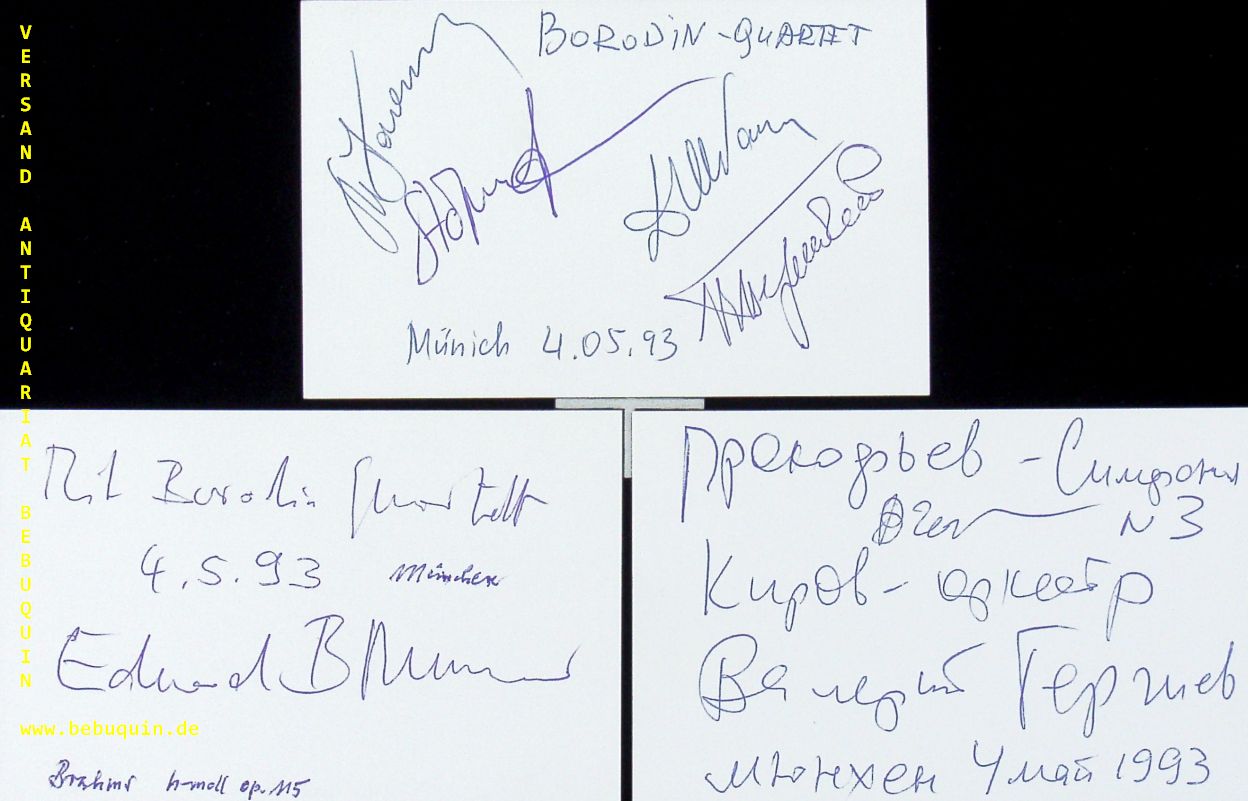 VERSAND ANTIQUARIAT BEBUQUIN
www.bebuquin.de
BORODIN-QUARTET
Münich 4.05.93
Mit Borodin Quartett
4.5.93 München
Eduard Brunner
Brahms h-moll op. 115
Прокофьев - Симфония
N 3
Киров - оркестр
Валерий Гергиев
Мюнхен 4 май 1993